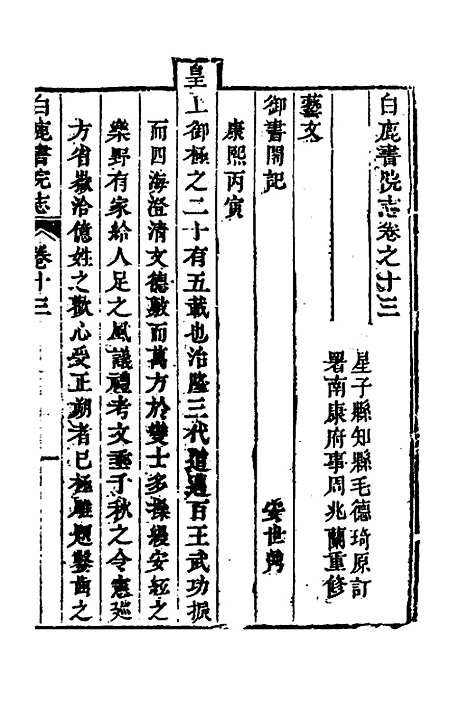 白鹿書院志卷之十三
星子縣知縣毛德琦原訂
署南康府事周兆蘭重修
藝文
御書閣記
安世鼎
康熙丙寅
皇上御極之二十有五載也治隆三代道邁百王武功振
而四海澄清文德敷而萬方於變士多操縵安絃之
樂野有家給人足之風議禮考文垂千秋之令憲巡
方省歛洽億姓之歡心受正朔者已極雕題鑿齒之
白鹿書院志
卷十三
一